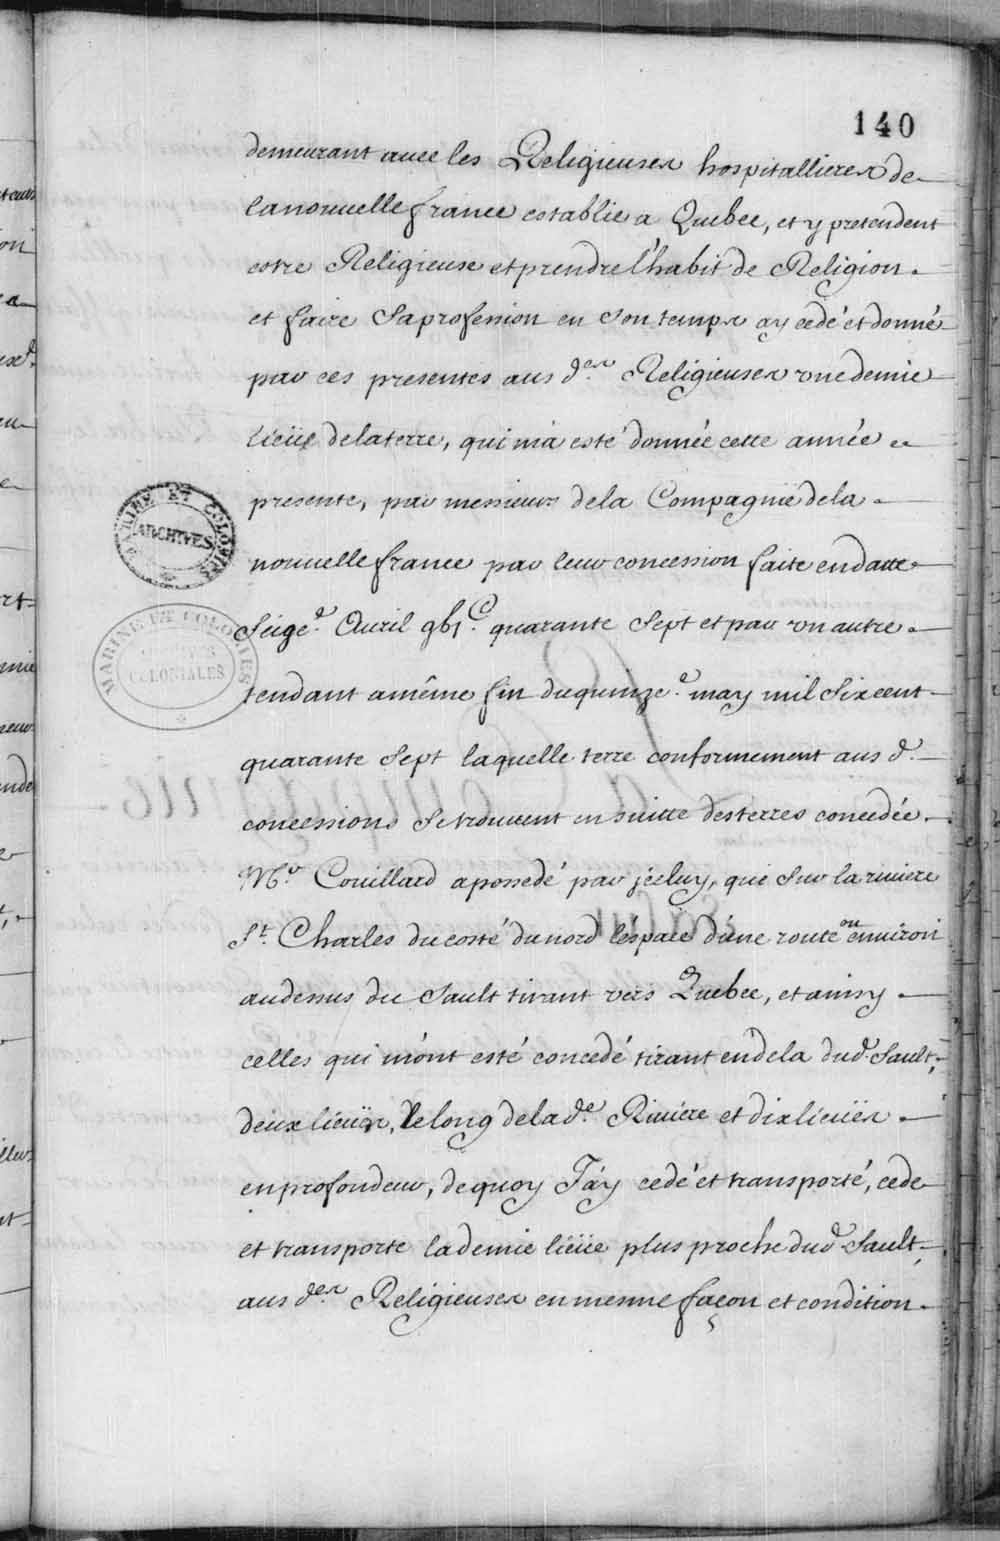 140
demeurant avec les Religieuses hospitallieres de
la nouvelle france establie a Quebec, et y pretendent
estre Religieuse et prendre l'habit de Religion.
et faire Sa profession en Son temps ay cedé et donné
par ces presentes aus d.es Religieuses vne demie
lieüe de la terre, qui m'a esté donnée cette année
presente, par messieurs de la Compagnie de la
nouvelle france par leur concession faite en datte
Seize.e Avril gbi.C quarante Sept et par vn autre
tendant a même fin du quinze.e may mil Six cent
quarante Sept laquelle terre conformement aus d.
concessions Se trouvent en suitte des terres concedée
Mr. Couillard a possedé par jceluy, qui Sur la riviere
St. Charles du costé du nord l'espace d'une route ou environ
au dessus du Sault tirant vers Quebec, et ainsy
celles qui m'ont esté concedé tirant en dela dud. Sault,
deux lieües, le long de lad.e Riviere et dix lieües
en profondeur, de quoy J'ay cedé et transporté, cede
et transporte la demie lieüe plus proche dud. Sault,
aus d.es Religieuses en mesme façon et condition
MARINE ET COLONIES
ARCHIVES
MARINE ET COLONIES
COLONIALES